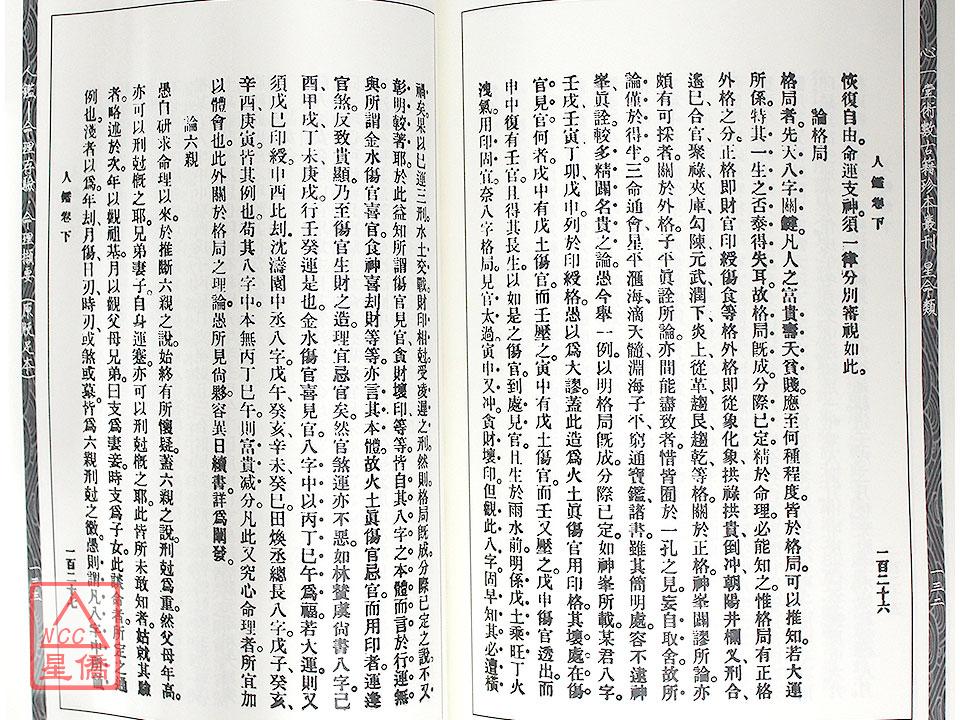 心一堂術數古籍珍本叢刊 星命類
一三二
人鑑卷下
一百二十六
恢復自由。命運支神。須一律分別審視如此。
論格局
格局者。先天八字關鍵。凡人之富貴壽夭貧賤。應至何種程度。皆於格局。可以推知。若大運
所係。特其一生之否泰得失耳。故格局既成。分際已定。精於命理。必能知之。惟格局有正格
外格之分。正格即財官印綬傷食等格。外格即從象化象拱祿拱貴倒冲朝陽井欄叉刑合
遙巳合官聚祿夾庫勾陳元武潤下炎上從革趨艮趨乾等格。關於正格。神峯闢謬所論。亦
頗有可採者。關於外格。子平眞詮所論。亦間能盡致者。惜皆囿於一孔之見。妄自取舍。故所
論僅於得半。三命通會。星平滙海。滴天髓。淵海子平。窮通寶鑑諸書。雖其簡明處。容不遠神
峯眞詮。較多精闢名貴之論。愚今舉一例。以明格局既成。分際已定。如神峯所載某君八字
壬戌壬寅丁卯戊申。列於印綬格。愚以爲大謬。蓋此造爲火土眞傷官用印格。其壞處在傷
官見官。何者。戌中有戊土傷官。而壬壓之。寅中有戊土傷官。而壬又壓之。戊申傷官透出。而
申中復有壬官。且得其長生。以如是之傷官。到處見官。且生於雨水前。明係戊土乘旺。丁火
洩氣。用印固宜。奈八字格局。見官太過。寅申又冲。貪財壞印。但觀此八字。固早知其必遭橫
禍矣。果以巳運三刑。水土交戰。財印相尅。受凌遲之刑。然則格局既成。分際已定之說。不又
彰明較著耶。於此益知所謂傷官見官。貪財壞印等等。皆自其八字之本體而言。於行運無
與。所謂金水傷官喜官。食神喜刦財等等。亦言其本體。故火土眞傷官忌官。而用印者。運逢
官煞。反致貴顯。乃至傷官生財之造。理官忌官矣。然官煞運亦不惡。如林贊虞尙書八字。己
酉甲戌丁未庚戌。行壬癸運是也。金水傷官喜見官。八字中以丙丁巳午爲福。若大運則又
須戊己印綬。申酉比刦。沈濤園中丞八字。戊午癸亥辛未癸巳。田煥丞總長八字。戊子癸亥
辛酉庚寅。皆其例也。苟其八字中。本無丙丁巳午。則富貴減分。凡此又究心命理者。所宜加
以體會也。此外關於格局之理論。愚所見尙夥。容異日續書。詳爲闡發。
論六親
愚自研求命理以來。於推斷六親之說。始終有所懷疑。蓋六親之說。刑尅爲重。然父母年高。
亦可以刑尅槪之耶。兄弟妻子。自身運蹇。亦可以刑尅槪之耶。此皆所未敢知者。姑就其驗
者。略述於次。年以觀祖基。月以觀父母兄弟。日支爲妻妾。時支爲子女。此談命者。所定之通
例也。淺者以爲年刦月傷日刃時刃。或煞或墓。皆爲六親刑尅之徵。愚則謂凡八字中
人鑑卷下
一百二十七
NCC
星僑